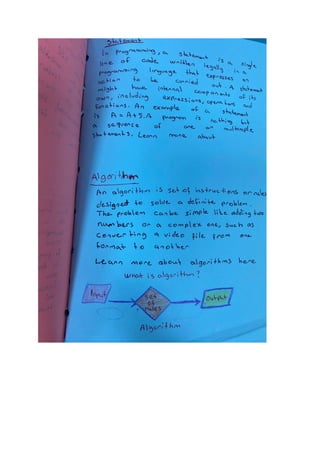 Statement
In programming, a statement is a single
line of code written legally in a
programming language that expresses an
action to be carried out. A statement
might have internal components of its
own, including expressions, operators and
functions. An example of a statement
is A = A+5. A program is nothing but
a sequence of one or multiple
statements. Learn more about
Algorithm
An algorithm is set of instructions or rules
designed to solve a definite problem.
The problem can be simple like adding two
numbers or a complex one, such as
converting a video file from one
format to another
Learn more about algorithms here
What is algorithm?
Input
Set
of
rules
Output
Algorithm